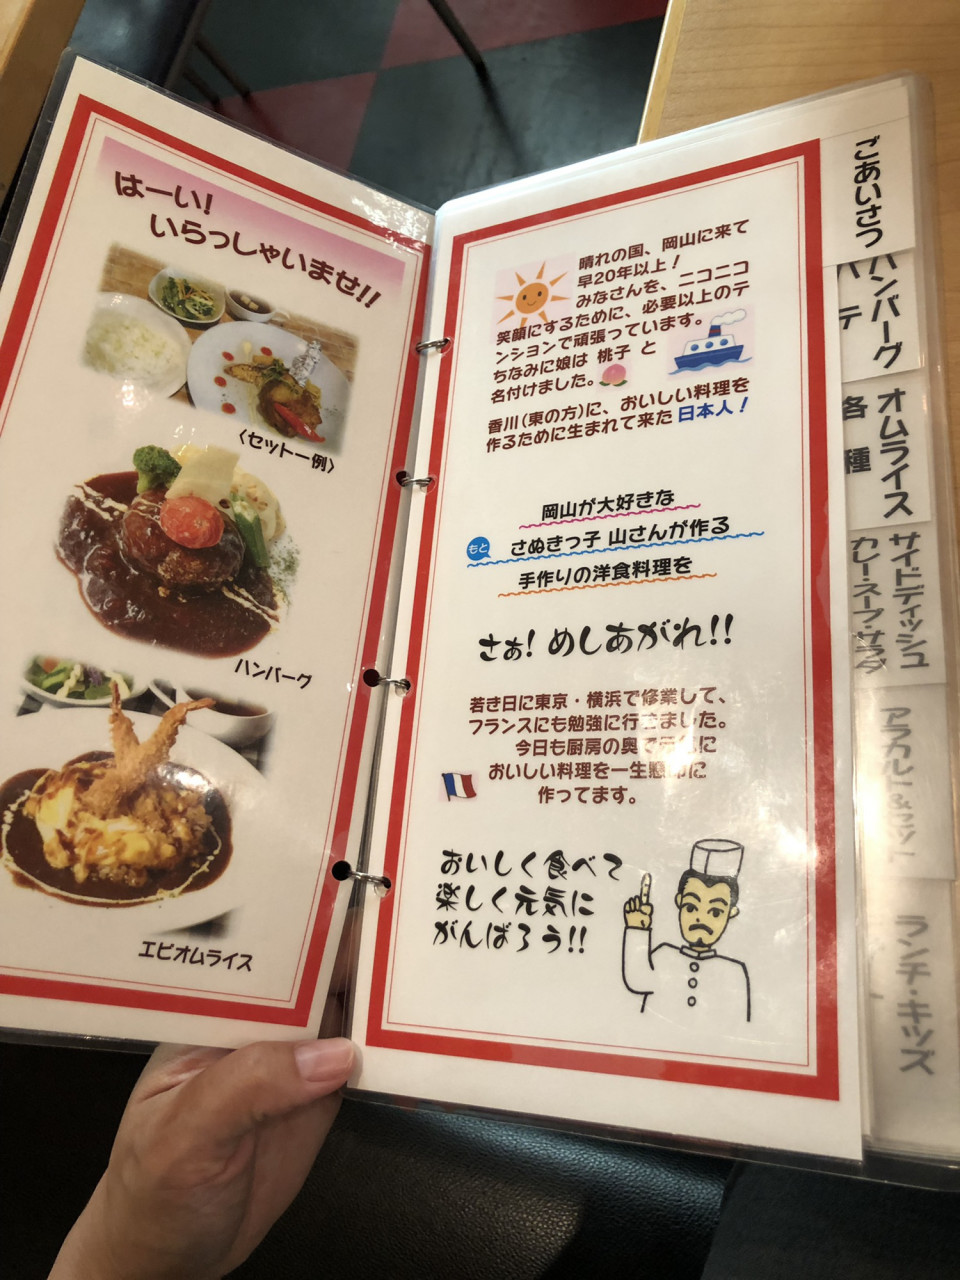 はーい!
いらっしゃいませ!!
〈セット一例〉
ハンバーグ
エビオムライス
晴れの国、岡山に来て
早20年以上!
みなさんを、ニコニコ
笑顔にするために、必要以上のテ
ンションで頑張っています。
ちなみに娘は 桃子 と
名付けました。
香川(東の方)に、おいしい料理を
作るために生まれて来た 日本人!
岡山が大好きな
もと さぬきっ子 山さんが作る
手作りの洋食料理を
さぁ! めしあがれ!!
若き日に東京・横浜で修業して、
フランスにも勉強に行きました。
今日も厨房の奥で元気に
おいしい料理を一生懸命に
作ってます。
おいしく食べて
楽しく元気に
がんばろう!!
ごあいさつ
ハンバーグ
オムライス
各種
サイドディッシュ
カレー・スープ・サラダ
アラカルト&セット
ランチ・キッズ